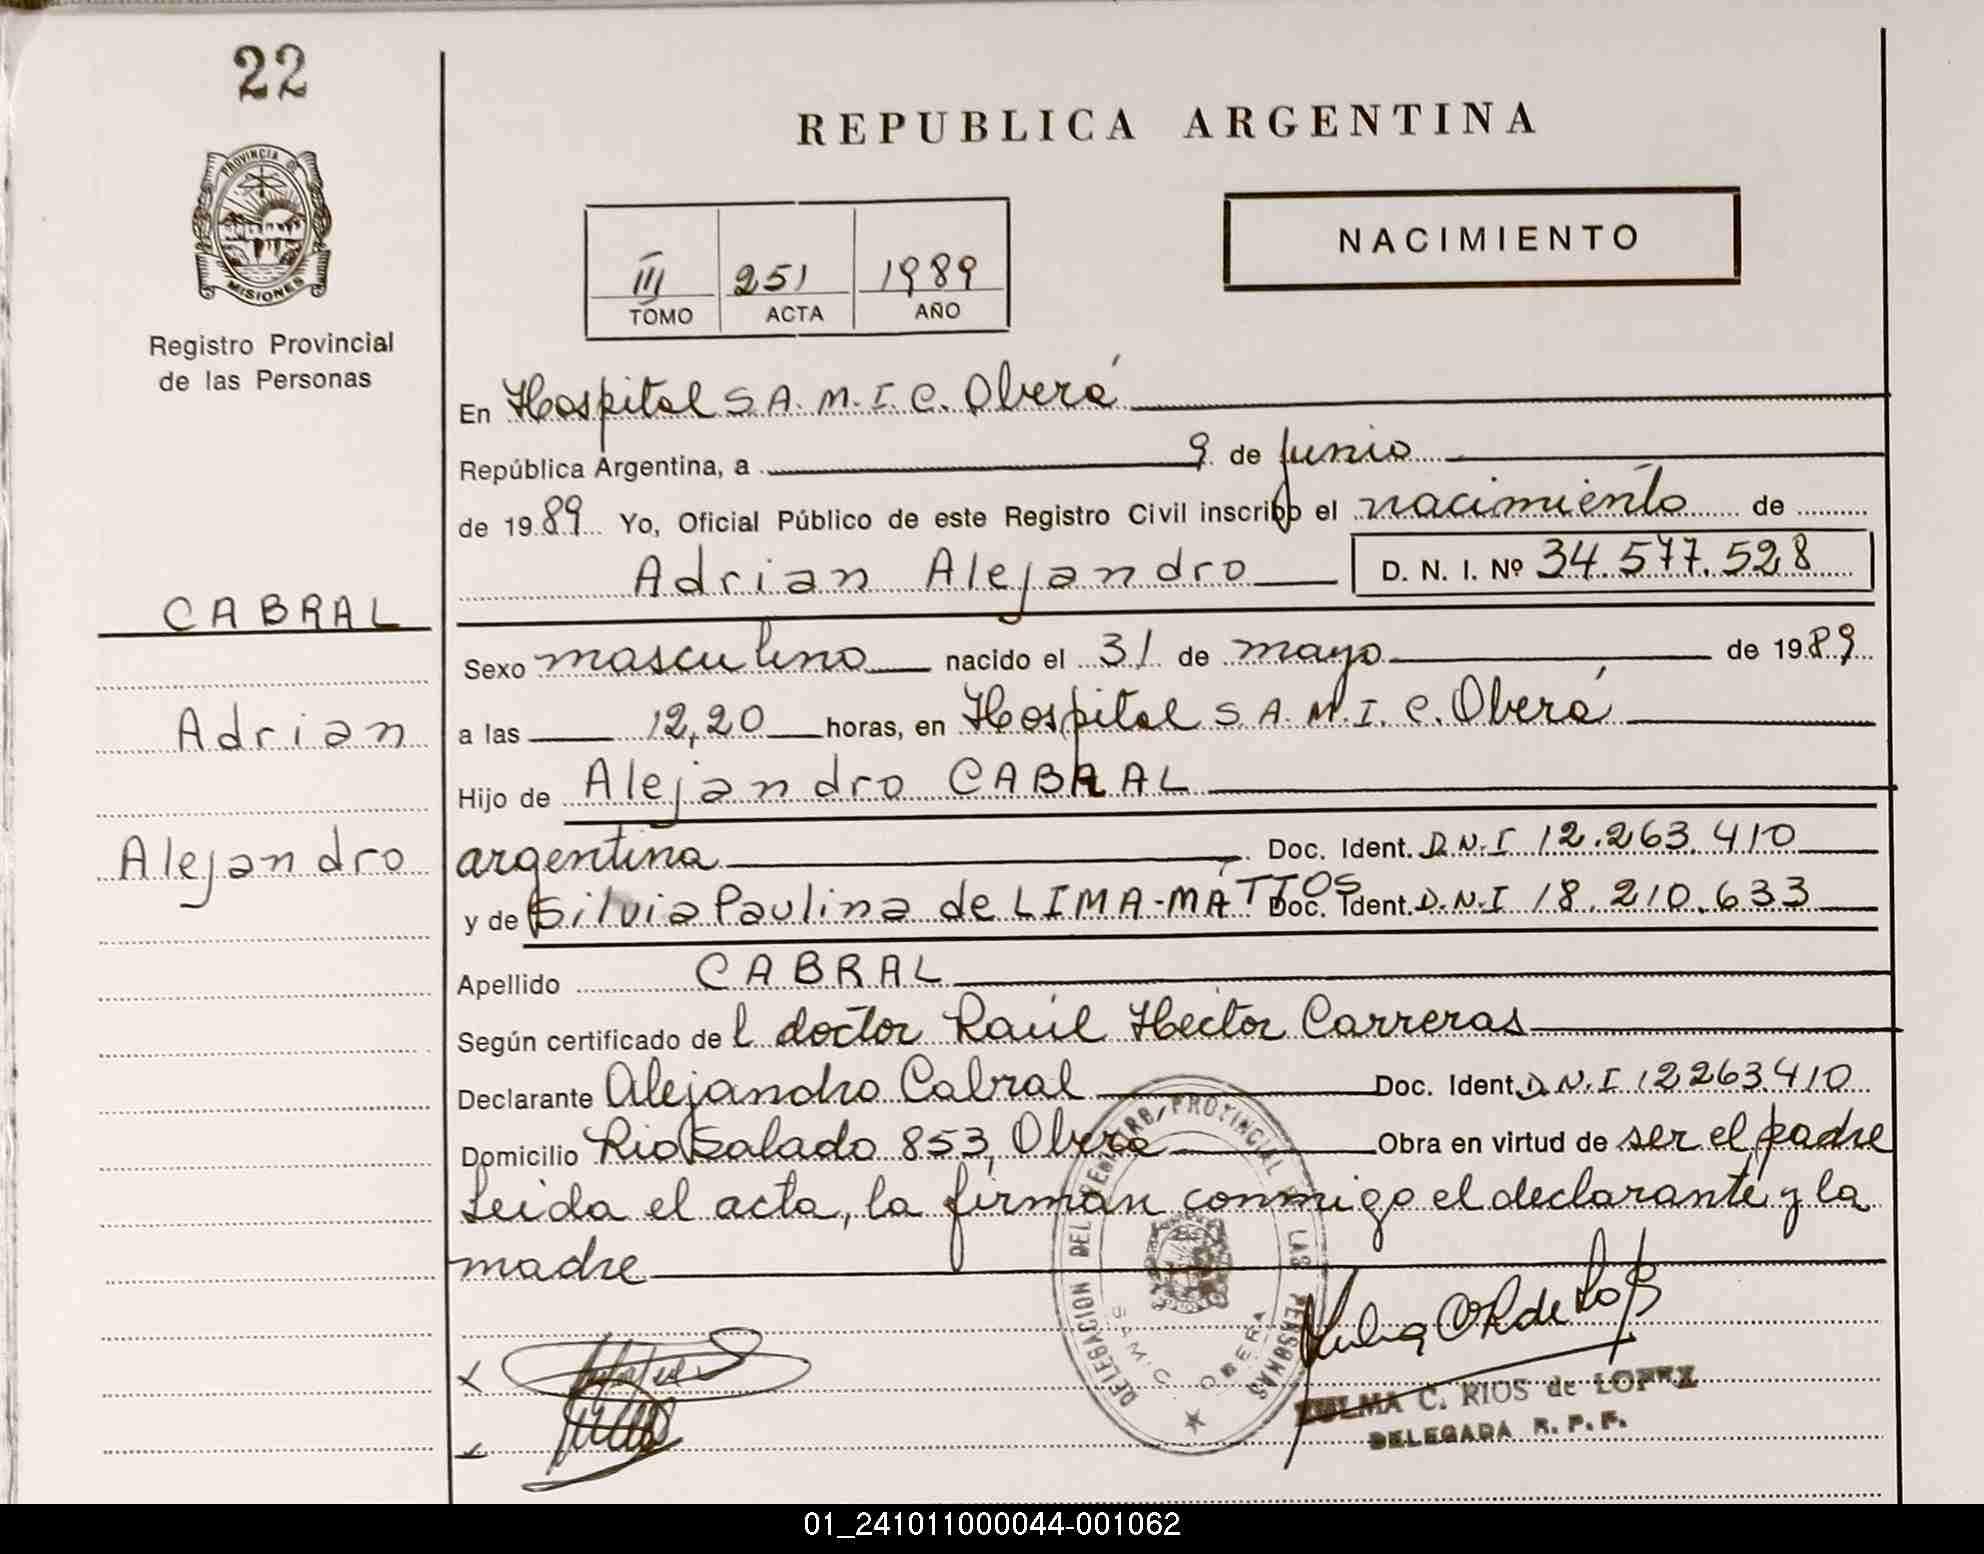 22
PROVINCIA DE
MISIONES
Registro Provincial
de las Personas
CABRAL
Adrian
Alejandro
REPUBLICA ARGENTINA
III 251 1989
TOMO ACTA AÑO
NACIMIENTO
En Hospital S.A.M.I.C. Oberá
República Argentina, a 9 de junio
de 1989 Yo, Oficial Público de este Registro Civil inscribo el nacimiento de
Adrian Alejandro D. N. I. Nº 34.577.528
Sexo masculino nacido el 31 de mayo de 1989
a las 12,20 horas, en Hospital S.A.M.I.C. Oberá
Hijo de Alejandro CABRAL
argentina Doc. Ident. D.N.I 12.263.410
y de Silvia Paulina de LIMA-MATTOS Doc. Ident. D.N.I 18.210.633
Apellido CABRAL
Según certificado del doctor Raúl Hector Carreras
Declarante Alejandro Cabral Doc. Ident. D.N.I 12263410
Domicilio Rio Salado 853, Oberá Obra en virtud de ser el padre
Leida el acta, la firman conmigo el declarante y la
madre
DELEGACION DEL REGISTRO PROVINCIAL DE LAS PERSONAS
S.A.M.I.C. OBERA
ZULMA C. RIOS de LOPEZ
DELEGADA R. P. P.
01_241011000044-001062